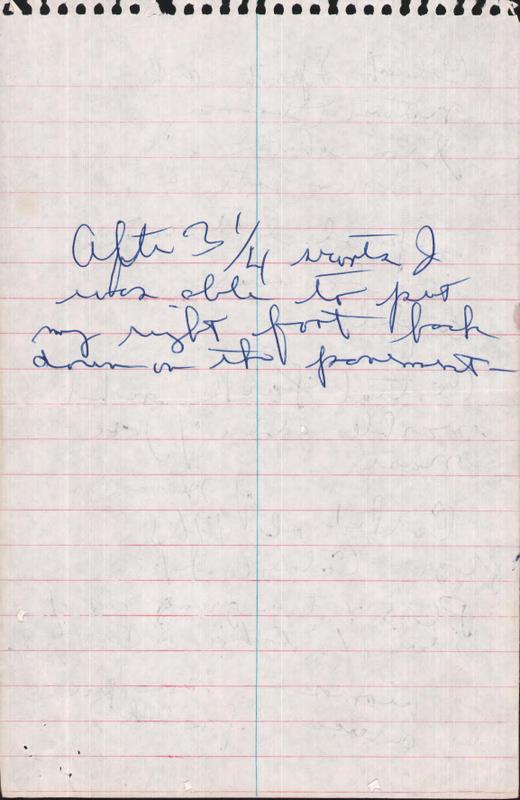 After 3 1/4 I
was able to put
my right foot back
down on the pavement—